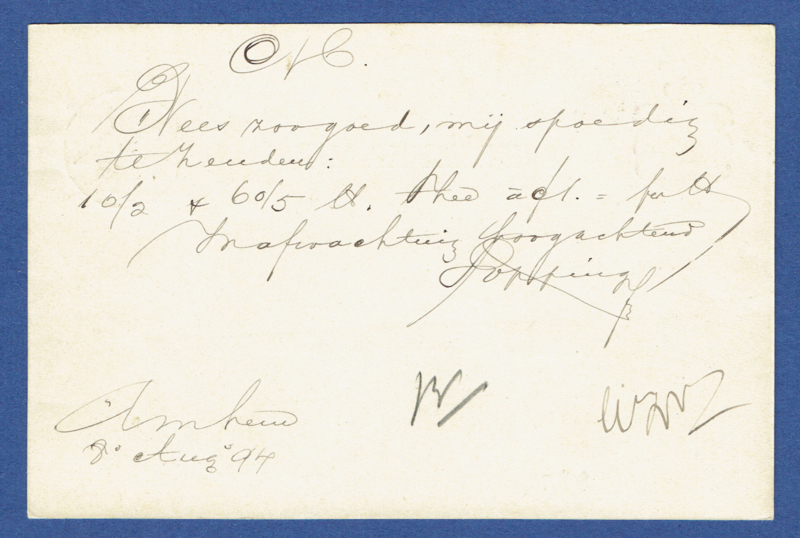 MH.
Wees zoo goed, mij spoedig
te zenden:
10/2 + 60/5 ℔. thee à f1.= per ℔
In afwachting hoogachtend
Popping
Arnhem
8 Aug 94